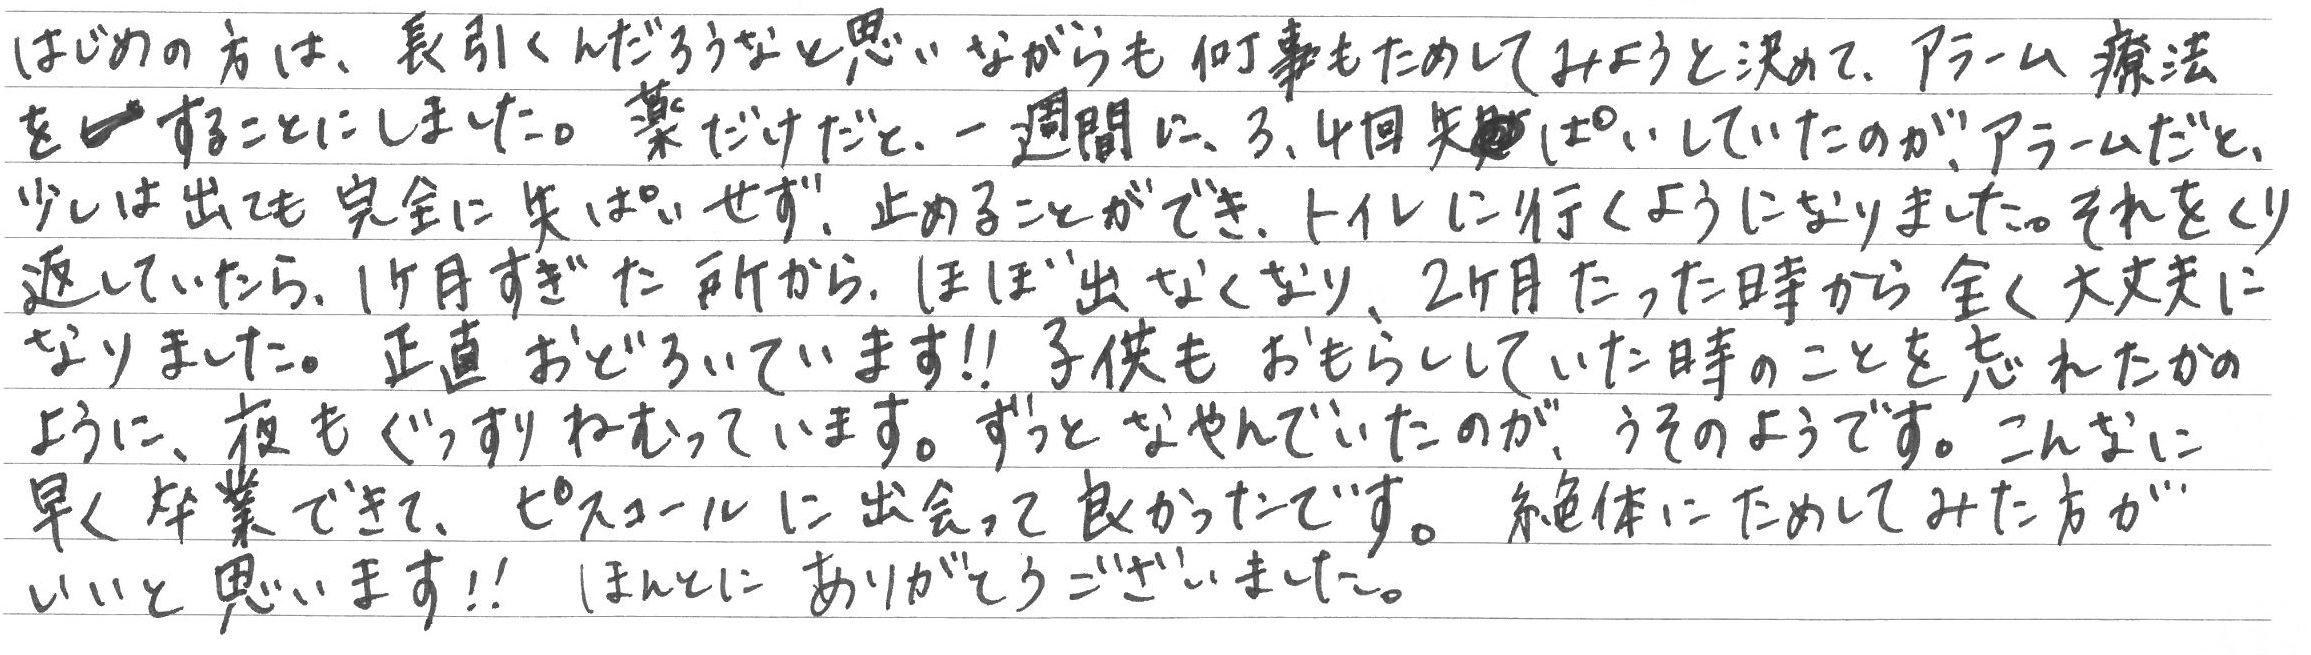 はじめの方は、長引くんだろうなと思いながらも何事もためしてみようと決めて、アラーム療法
をすることにしました。薬だけだと、一週間に、3、4回失ぱいしていたのが、アラームだと、
少しは出ても完全に失ぱいせず、止めることができ、トイレに行くようになりました。それをくり
返していたら、1ケ月すぎた所から、ほぼ出なくなり、2ケ月たった時から全く大丈夫に
なりました。正直おどろいています!! 子供もおもらししていた時のことを忘れたかの
ように、夜もぐっすりねむっています。ずっとなやんでいたのが、うそのようです。こんなに
早く卒業できて、ピスコールに出会って良かったです。絶体にためしてみた方が
いいと思います!! ほんとにありがとうございました。